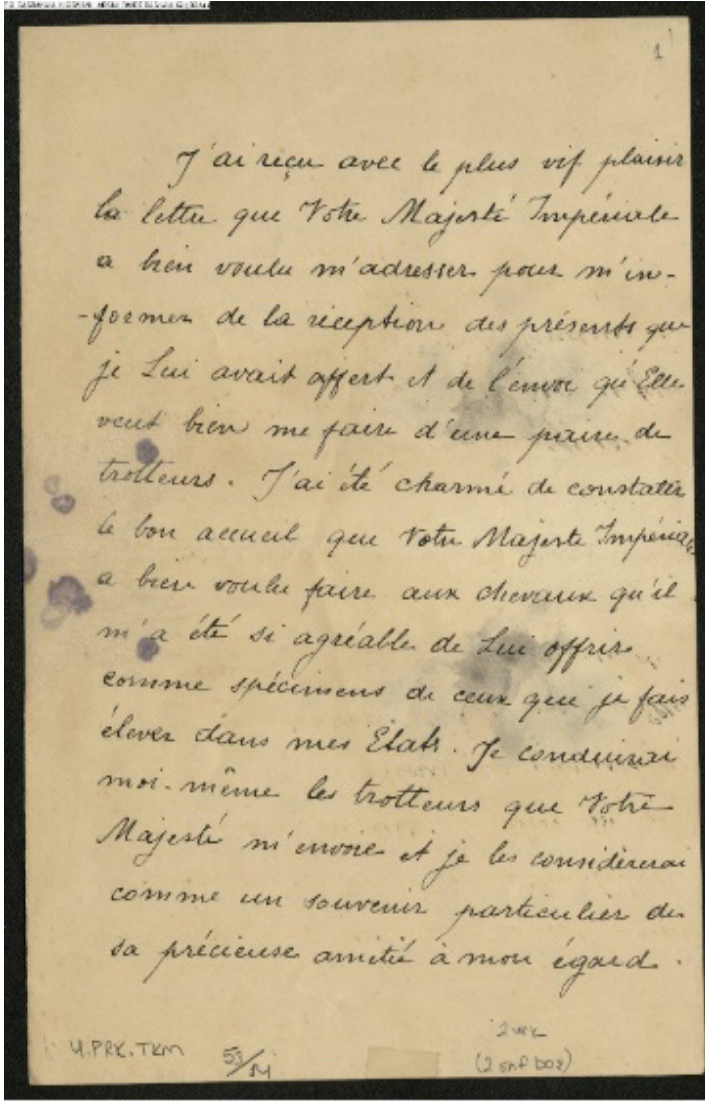 1
J'ai reçu avec le plus vif plaisir
la lettre que Votre Majesté Impériale
a bien voulu m'adresser pour m'in-
-former de la réception des présents que
je Lui avait offert et de l'envoi qu'Elle
veut bien me faire d'une paire de
trotteurs. J'ai été charmé de constater
le bon accueil que Votre Majesté Impériale
a bien voulu faire aux chevaux qu'il
m'a été si agréable de Lui offrir
comme spécimens de ceux que je fais
élever dans mes Etats. Je conduirai
moi-même les trotteurs que Votre
Majesté m'envoie et je les considèrerai
comme un souvenir particulier de
sa précieuse amitié à mon égard.
Y.PRK.TKM
53/14
2 vrk
(2 snf boş)